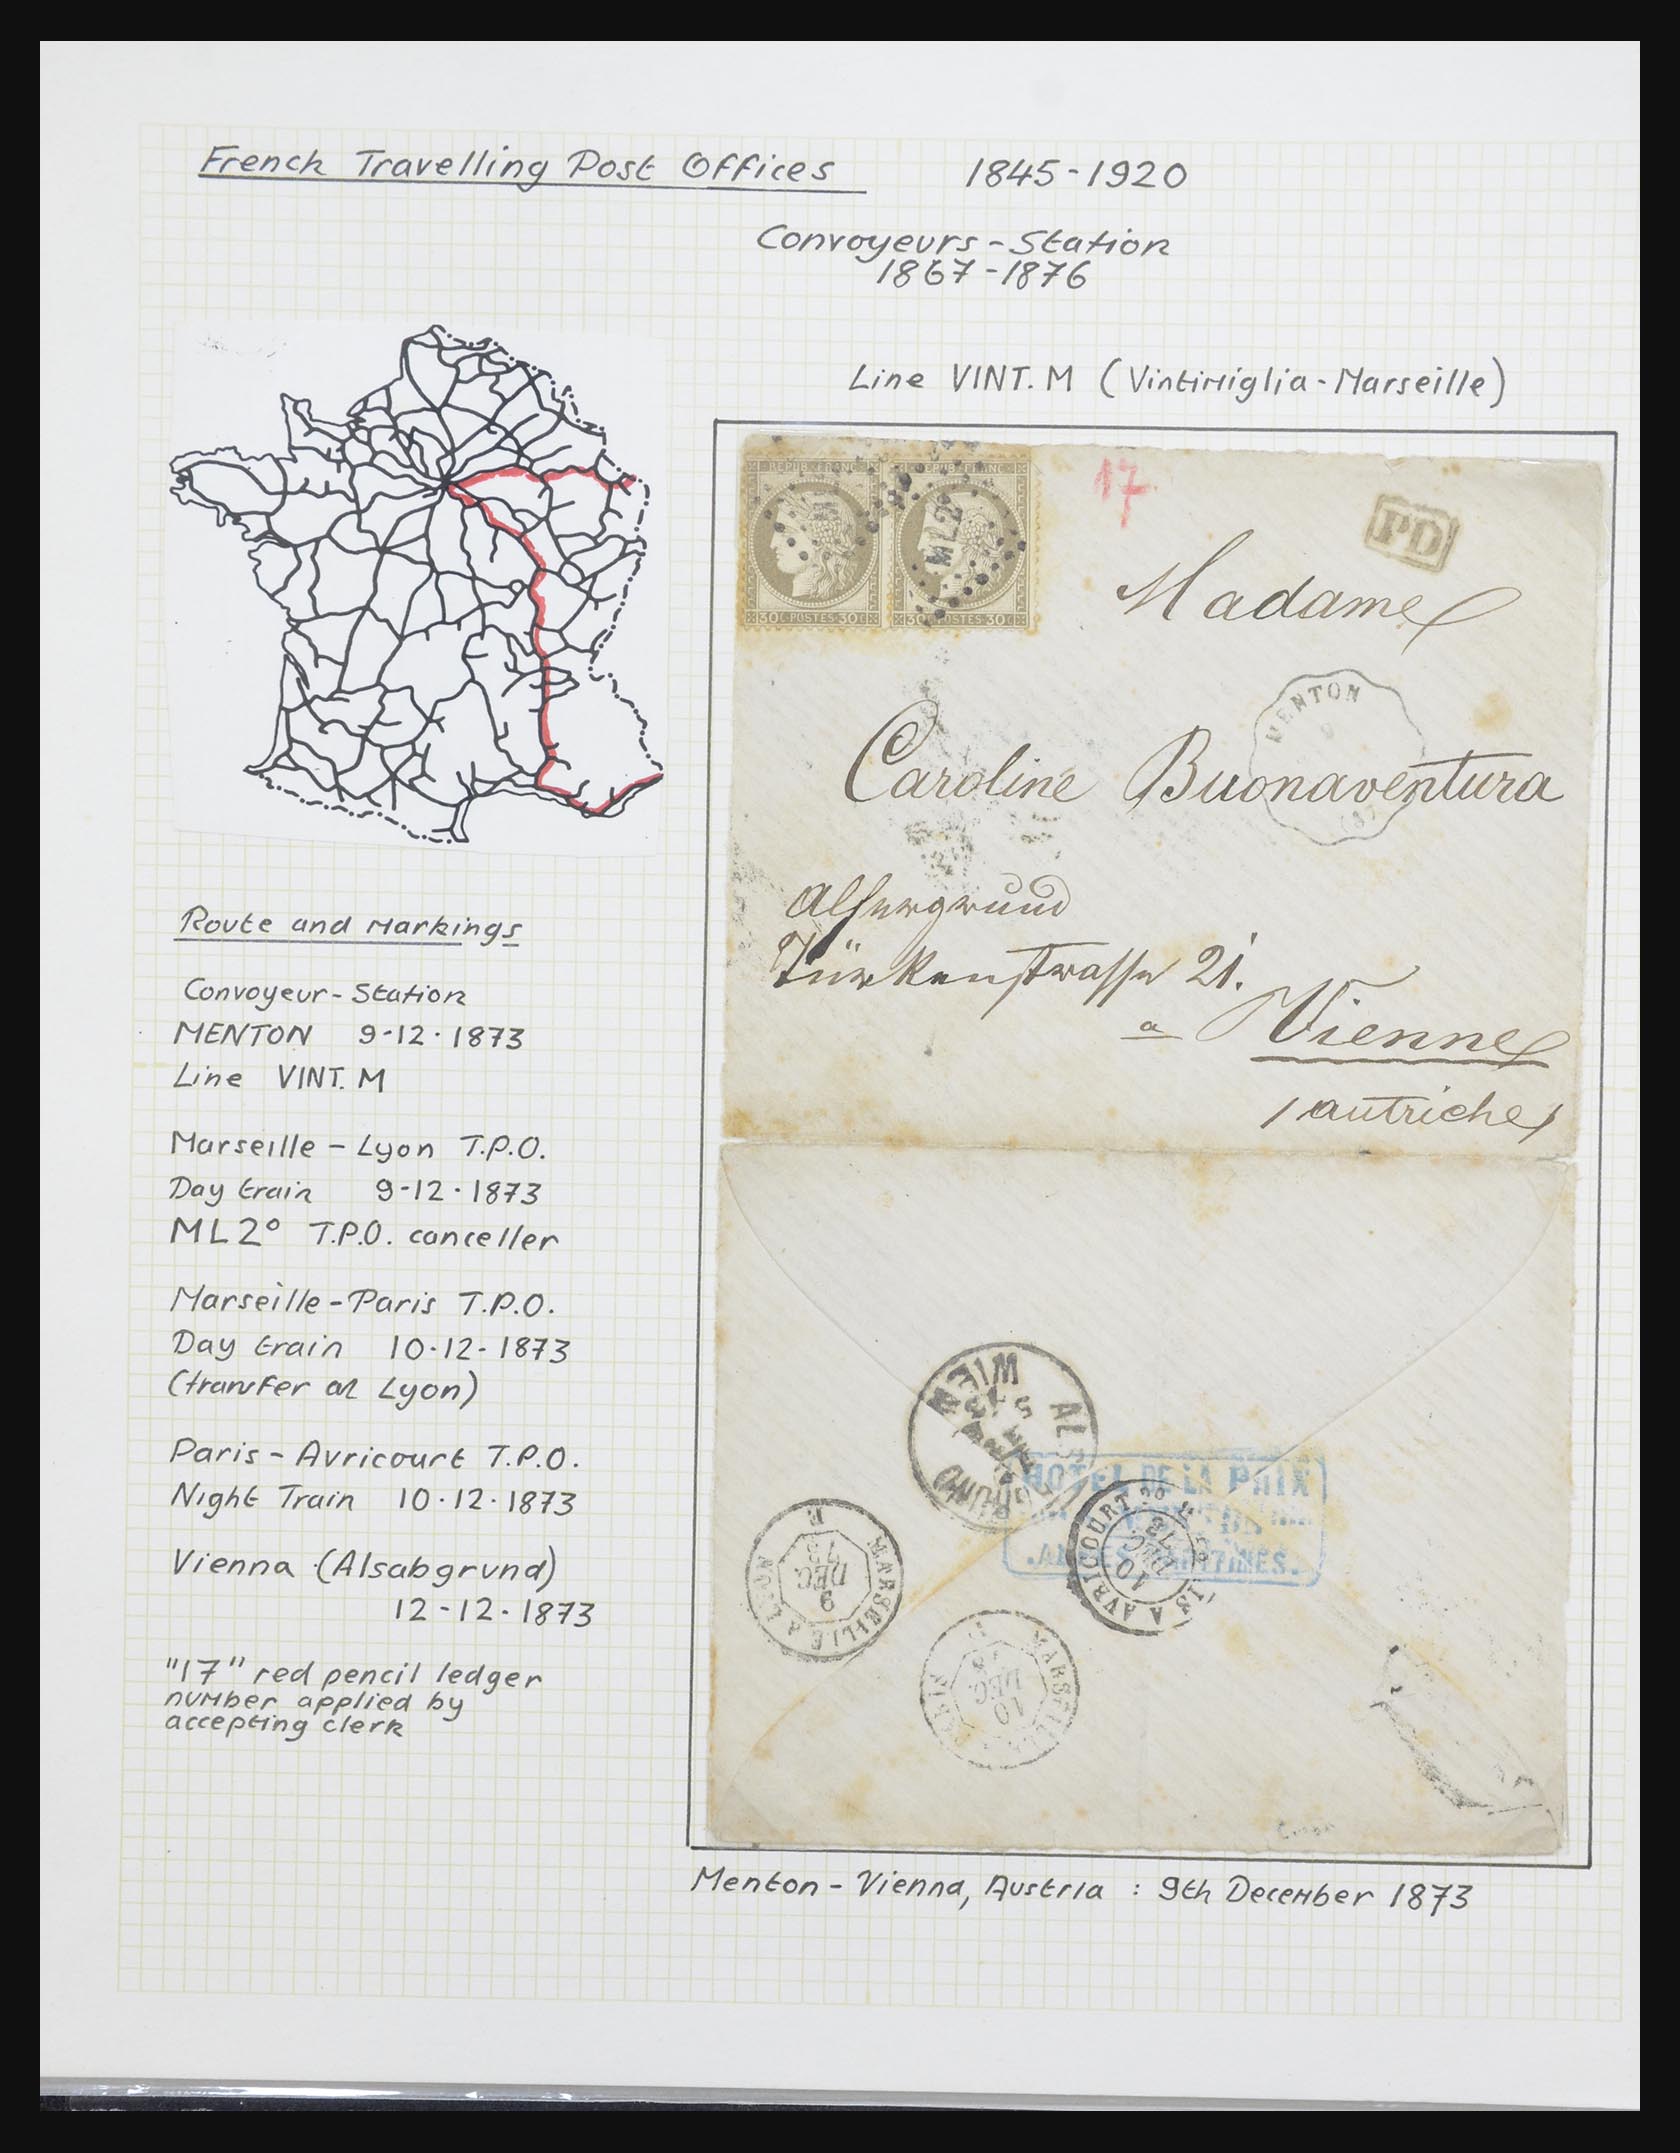 French Travelling Post Offices 1845-1920
Convoyeurs-Station
1867-1876
Line VINT. M (Vintimiglia-Marseille)
REPUB·FRANC
REPUB·FRANC
30 C POSTES 30 C
30 C POSTES 30 C
ML2°
17
PD
Madame
MENTON
Caroline Buonaventura
Alsergrund
Türkenstrasse 21.
a Vienne
autriche
Route and Markings
Convoyeur-Station
MENTON 9-12-1873
Line VINT. M
Marseille - Lyon T.P.O.
Day train 9-12-1873
ML2° T.P.O. canceller
Marseille-Paris T.P.O.
Day train 10-12-1873
(transfer at Lyon)
Paris - Avricourt T.P.O.
Night Train 10-12-1873
Vienna (Alsabgrund)
12-12-1873
"17" red pencil ledger
number applied by
accepting clerk
WIEN
HOTEL DE LA PAIX
MARSEILLE A LYON
9
DEC.
73
PARIS A AVRICOURT
10
DEC
73
10
DEC.
Menton - Vienna, Austria : 9th December 1873